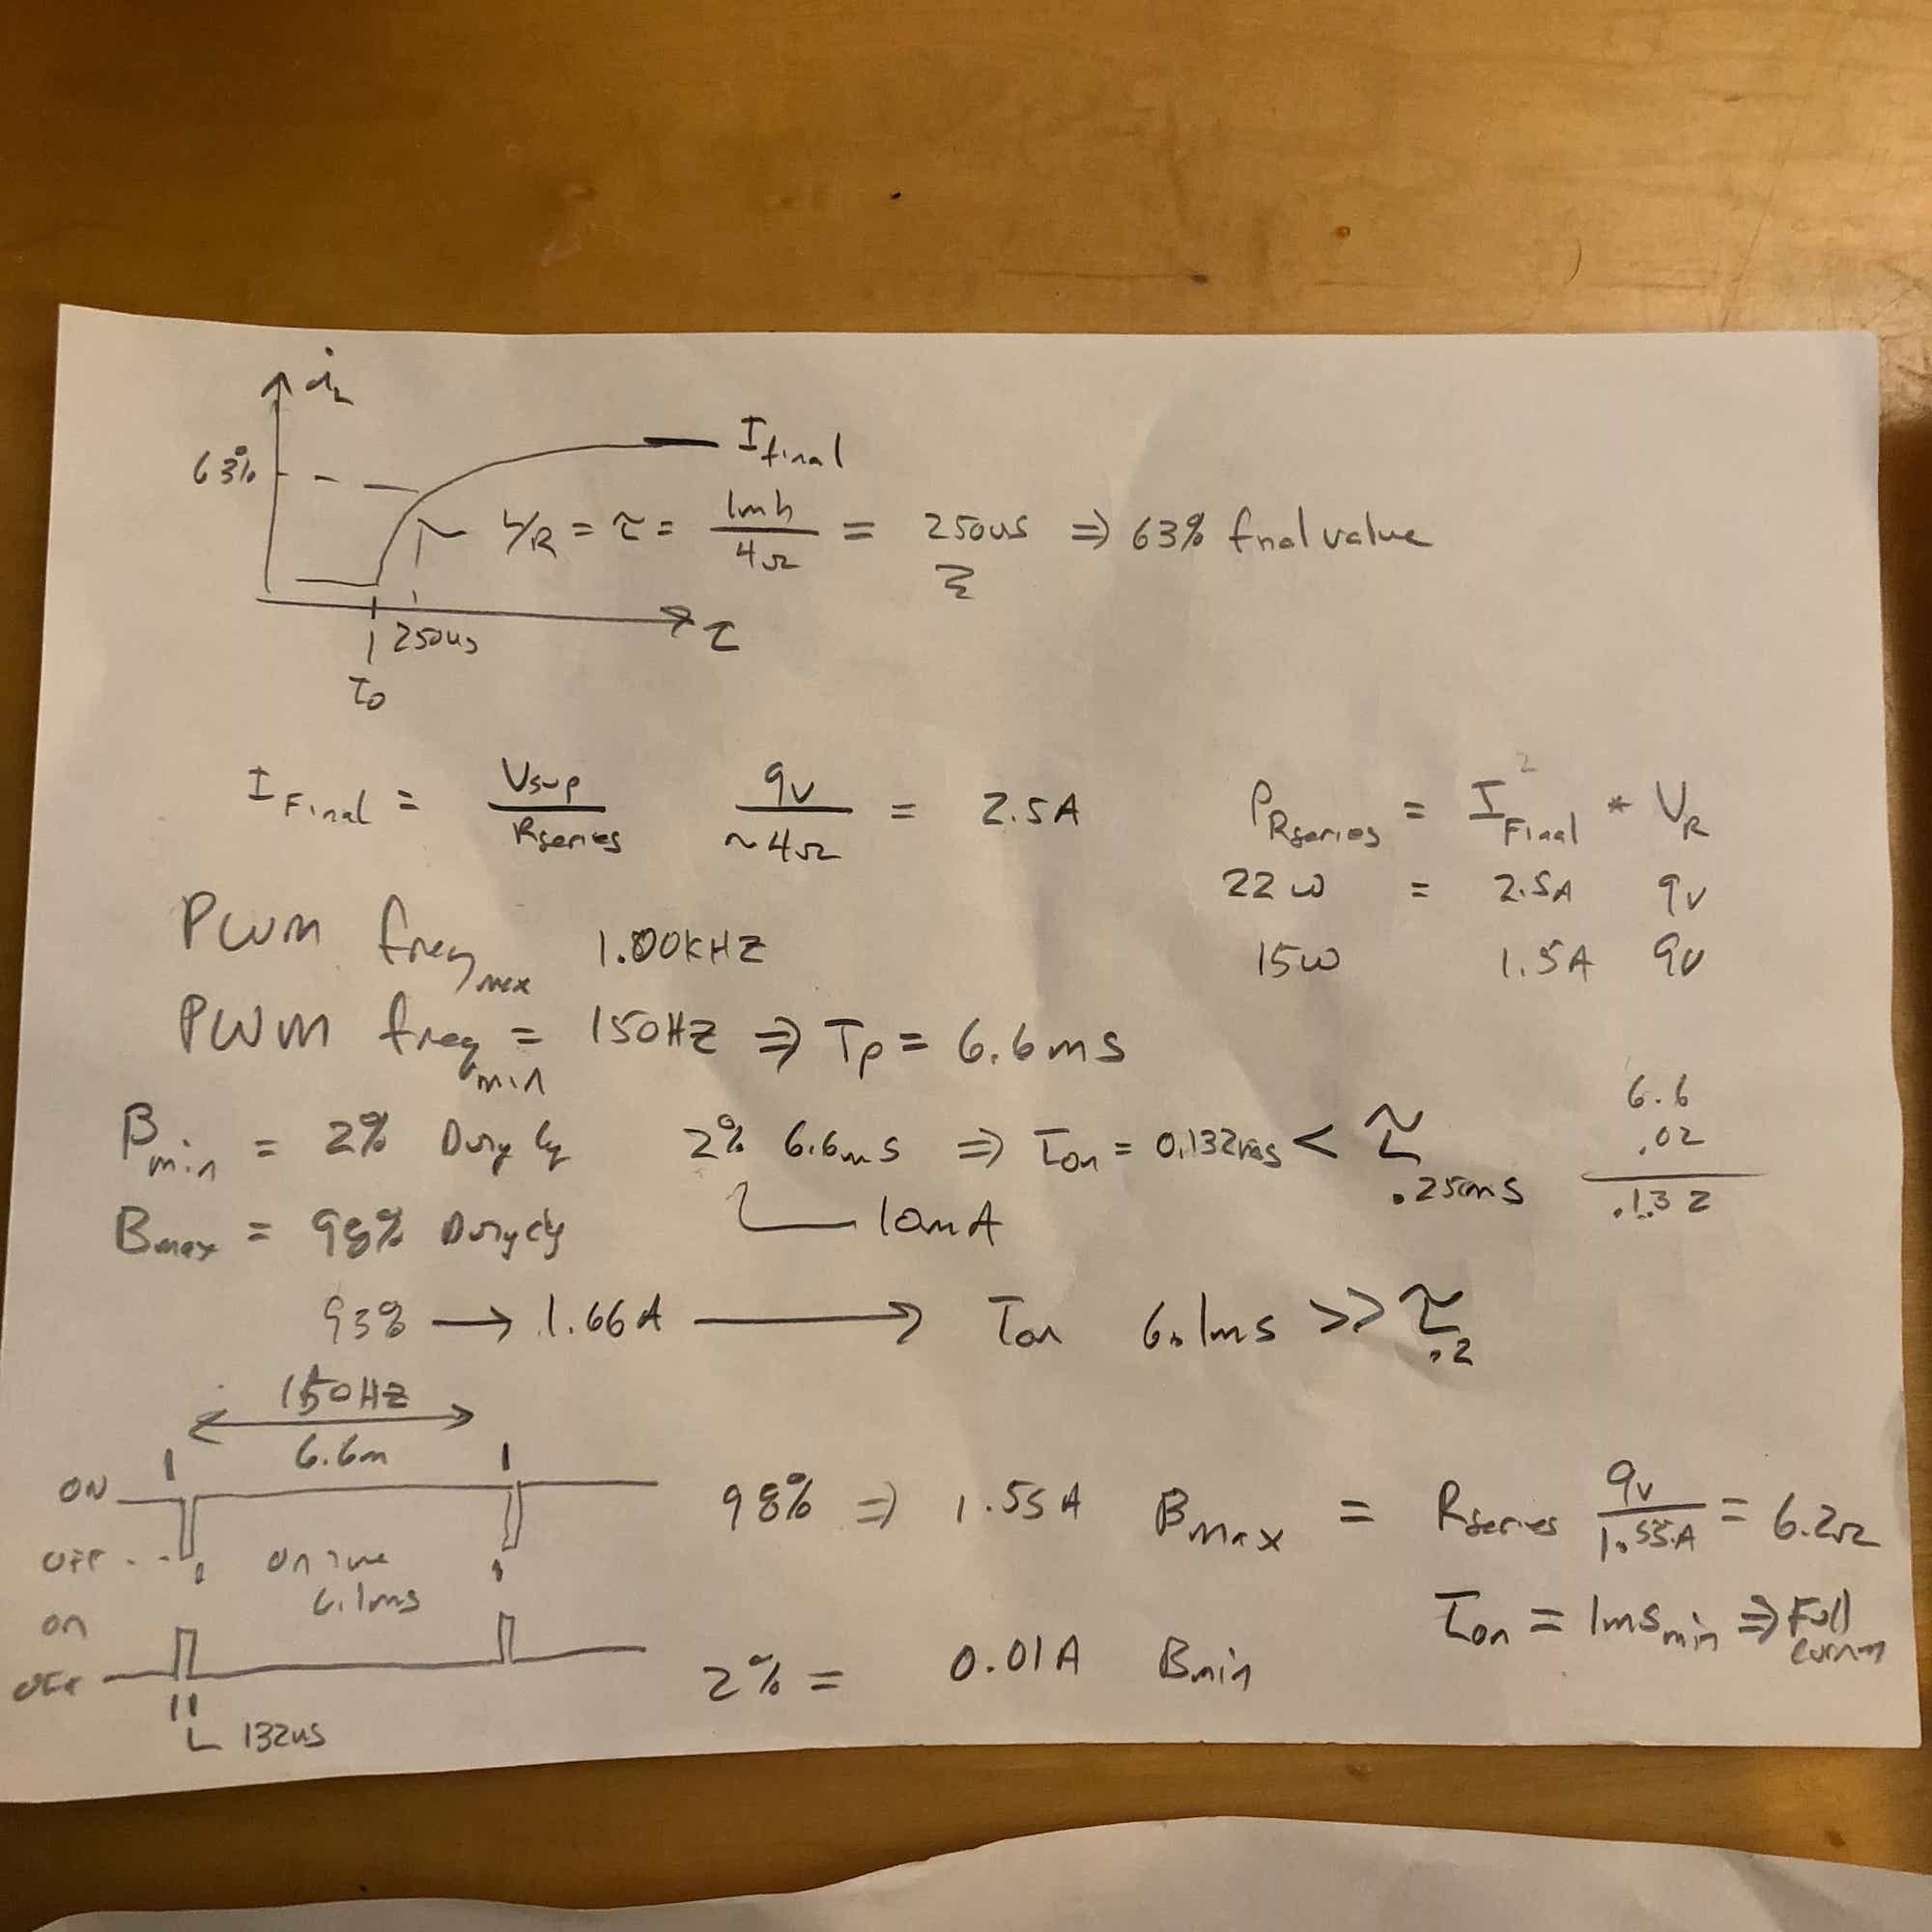 i_L
63%
I final
L/R = τ = 1mh / 4Ω = 250us ⇒ 63% fnal value
250us
τ
T0
I Final = Vsup / Rseries 9v / ~4Ω = 2.5A
P Rseries = I Final ² * V R
22w = 2.5A 9v
15w 1.5A 9v
PWM freq max 1.00KHZ
PWM freq min = 150HZ ⇒ Tp = 6.6ms
B min = 2% Duty Cy 2% 6.6ms ⇒ Ton = 0.132ms < τ .25ms
6.6
.02
.132
10mA
Bmax = 98% Duty cy
93% → 1.66A → Ton 6.1ms >> τ .2
150HZ
6.6m
ON
OFF
On time
6.1ms
98% ⇒ 1.55A Bmax = Rseries 9v / 1.55A = 6.2Ω
Ton = 1ms min ⇒ Full
on
OFF
132us
2% = 0.01A Bmin